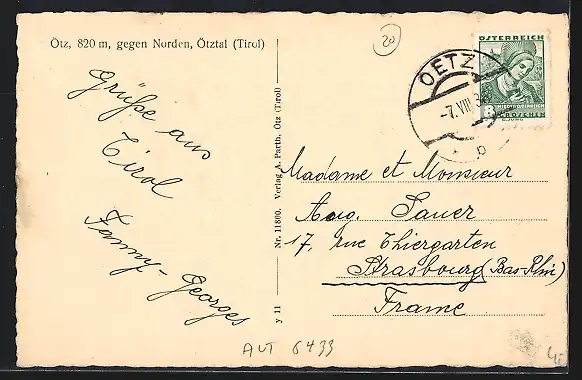 Ötz, 820 m, gegen Norden, Ötztal (Tirol)
20
Grüße aus
Tirol
Fanny-Georges
y 11 Nr. 11800. Verlag A. Parth, Ötz (Tirol)
OETZ
-7.VIII 3
b
ÖSTERREICH
8
NIEDERÖSTERREICH
GROSCHEN
Madame et Monsieur
Aug. Sauer
17, rue Thiergarten
Strasbourg (Bas-Rhin)
France
AUT 6433